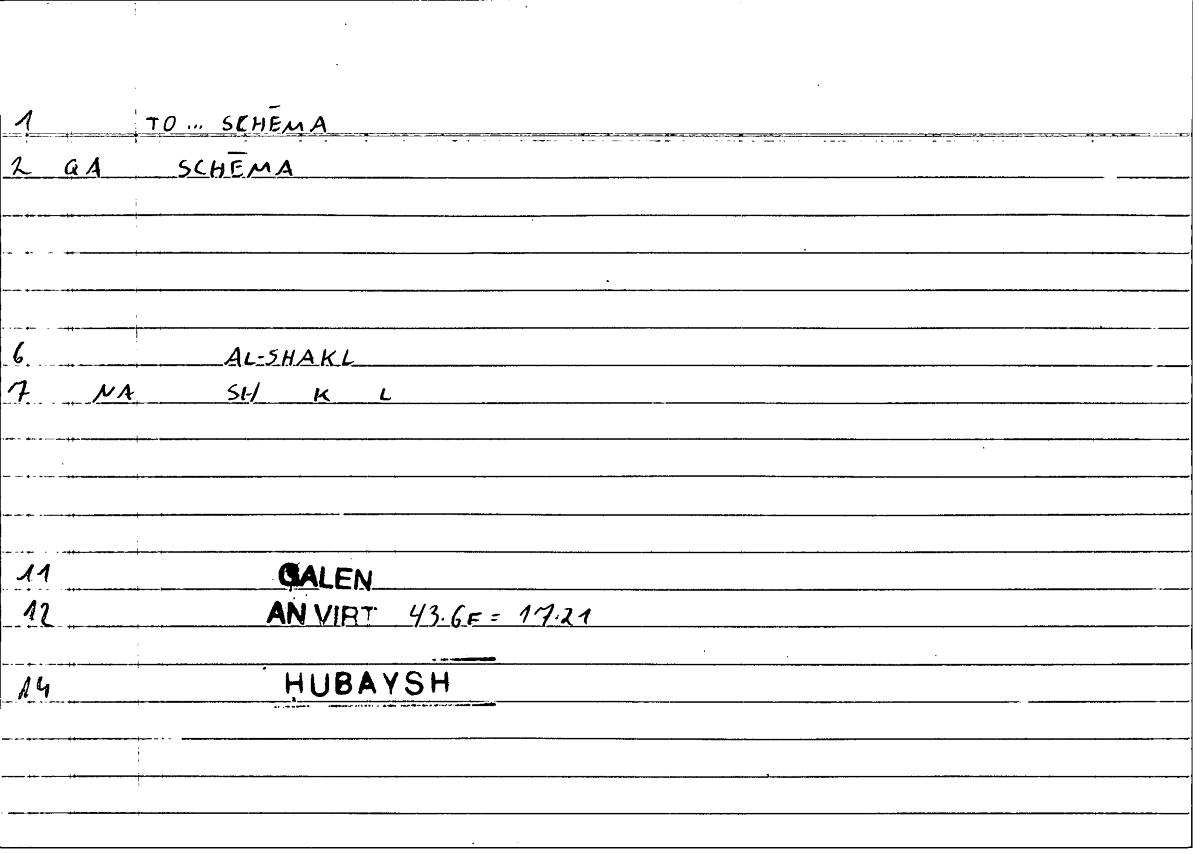 1 TO ... SCHĒMA
2 QA SCHĒMA
6 AL-SHAKL
7 NA SH K L
11 GALEN
12 AN VIRT 43.6F = 17.21
14 HUBAYSH